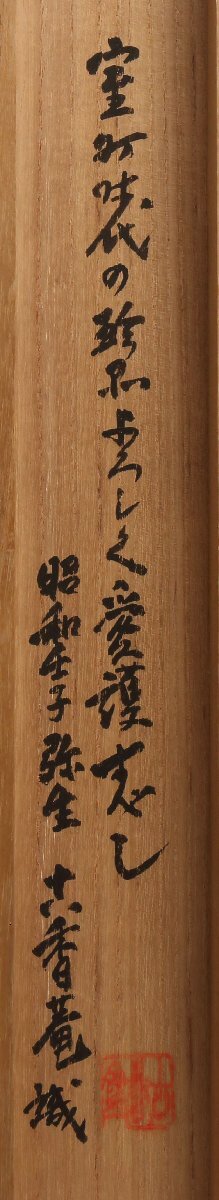 室町時代の珍品よろしく愛護すべし
昭和壬子弥生 十六香菴識